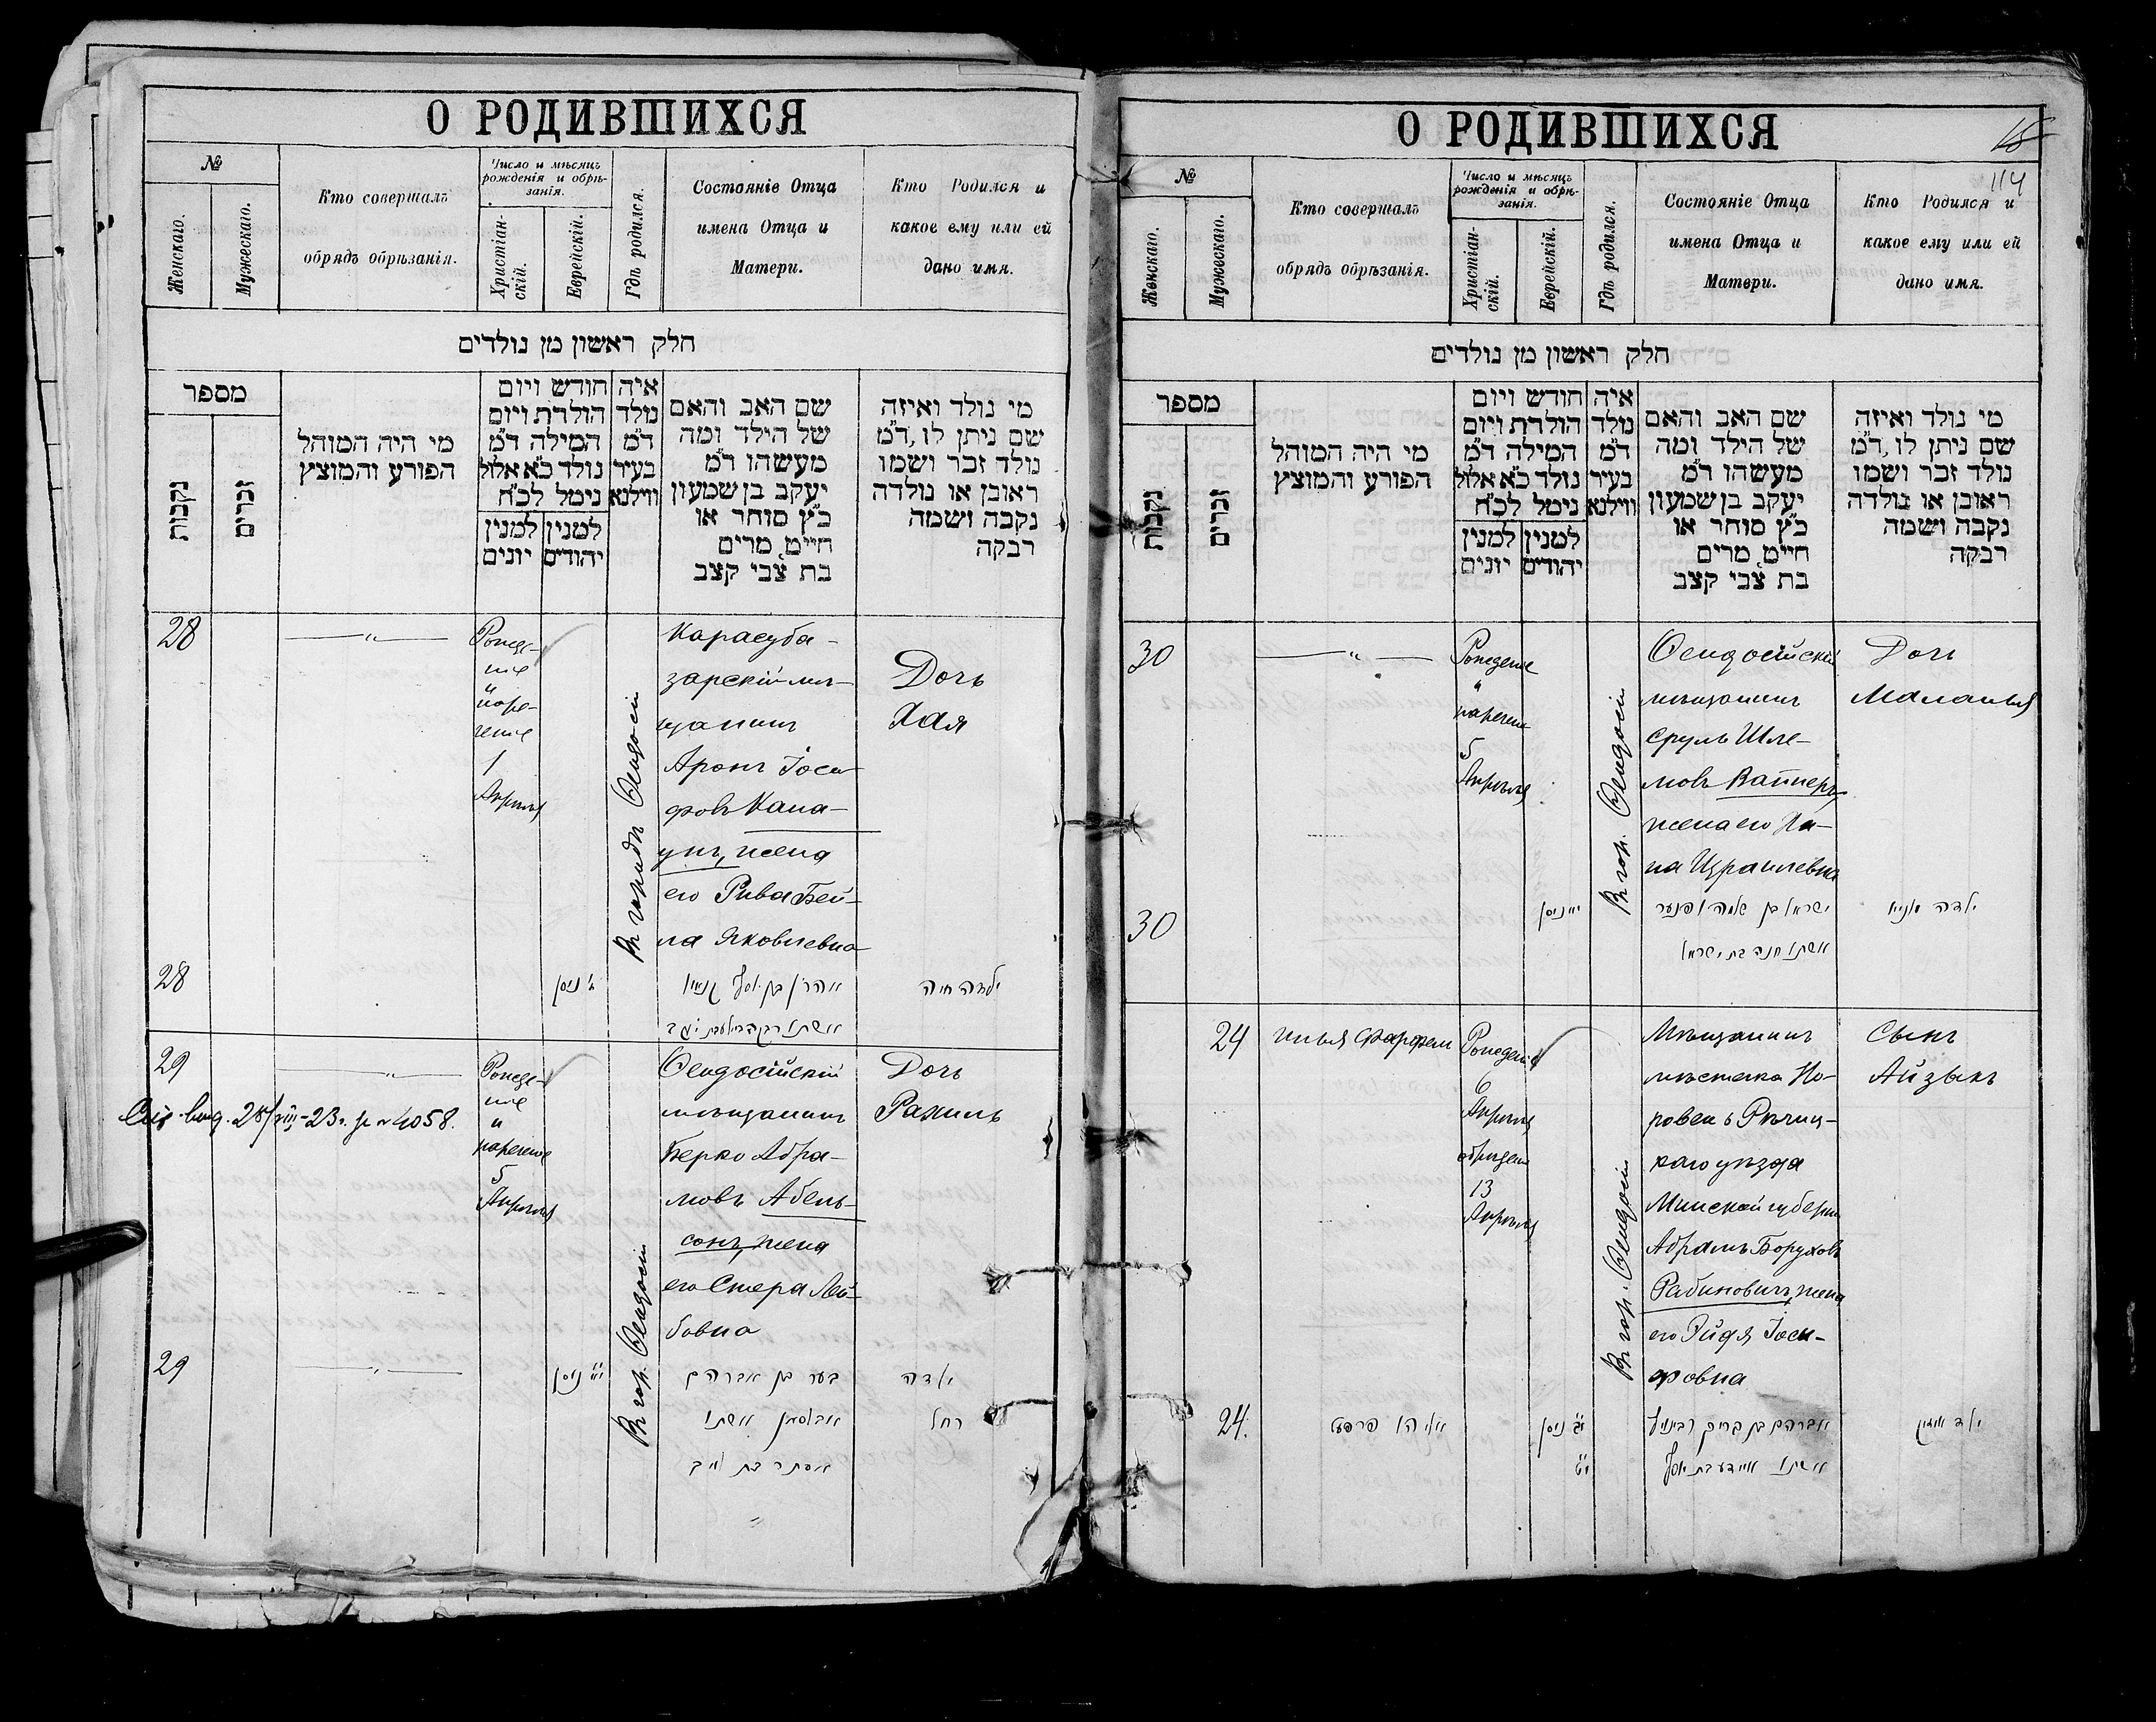 О РОДИВШИХСЯ
№
Женскаго.
Мужескаго.
Кто совершалъ
обрядъ обрѣзанія.
Число и мѣсяцъ
рожденія и обрѣ-
занія.
Христіан-
скій.
Еврейскій.
Гдѣ родился.
Состояніе Отца
имена Отца и
Матери.
Кто Родился и
какое ему или ей
дано имя.
חלק ראשון מן נולדים
מספר
נקבות
זכרים
מי היה המוהל
הפורע והמוצץ
חודש ויום
הולדת ויום
המילה ד״מ
נולד כ״א אלול
נימל לכ״ח
למנין
יונים
למנין
יהודים
איה
נולד
ד״מ
בעיר
ווילנא
שם האב והאם
של הילד ומה
מעשהו ד״מ
יעקב בן שמעון
כ״ץ סוחר או
חייט, מרים
בת צבי קצב
מי נולד ואיזה
שם ניתן לו, ד״מ
נולד זכר ושמו
ראובן או נולדה
נקבה ושמה
רבקה
28
Рожде-
ніе
и
наре-
ченіе
1
Апрѣля
Въ городѣ Ѳеодосіи
Карасуба-
зарскій мѣ-
щанинъ
Аронъ Іоси-
фовъ Кана-
унъ, жена
его Рива Бей-
ла Яковлевна
Дочь
Хая
28
ניסן
אהרן בן יוסף
ילדה חיה
29
Рожде-
ніе
и
нареченіе
5
Апрѣля
Въ гор. Ѳеодосіи
Ѳеодосійскій
мѣщанинъ
Берко Абра-
мовъ Абель-
сонъ, жена
его Стера Лей-
бовна
Дочь
Рахиль
4058.
29
ניסן
בער בן אברהם
אבלסאן אשתו
אסתר בת לייב
ילדה
רחל
О РОДИВШИХСЯ
15
114
№
Женскаго.
Мужескаго.
Кто совершалъ
обрядъ обрѣзанія.
Число и мѣсяцъ
рожденія и обрѣ-
занія.
Христіан-
скій.
Еврейскій.
Гдѣ родился.
Состояніе Отца
имена Отца и
Матери.
Кто Родился и
какое ему или ей
дано имя.
חלק ראשון מן נולדים
מספר
נקבות
זכרים
מי היה המוהל
הפורע והמוצץ
חודש ויום
הולדת ויום
המילה ד״מ
נולד כ״א אלול
נימל לכ״ח
למנין
יונים
למנין
יהודים
איה
נולד
ד״מ
בעיר
ווילנא
שם האב והאם
של הילד ומה
מעשהו ד״מ
יעקב בן שמעון
כ״ץ סוחר או
חייט, מרים
בת צבי קצב
מי נולד ואיזה
שם ניתן לו, ד״מ
נולד זכר ושמו
ראובן או נולדה
נקבה ושמה
רבקה
30
Рожденіе
и
нареченіе
5
Апрѣля
Въ гор. Ѳеодосіи
Ѳеодосійскій
мѣщанинъ
Сруль Шле-
мовъ Вайнеръ
жена его Ха-
на Израилевна
Дочь
Маланья
30
ניסן
ישראל בן שלמה
אשתו חנה בת ישראל
ילדה
24
Илья Фарфель
Рожденіе
6
Апрѣля
обрѣзаніе
13
Апрѣля
Въ гор. Ѳеодосіи
Мѣщанинъ
мѣстечка На-
ровель Рѣчиц-
каго уѣзда
Минской губерніи
Абрамъ Боруховъ
Рабиновичъ, жена
его Эйдя Іоси-
фовна
Сынъ
Айзыкъ
24.
אליהו
ניסן
אברהם בן ברוך
אשתו איידע בת יוסף
ילד